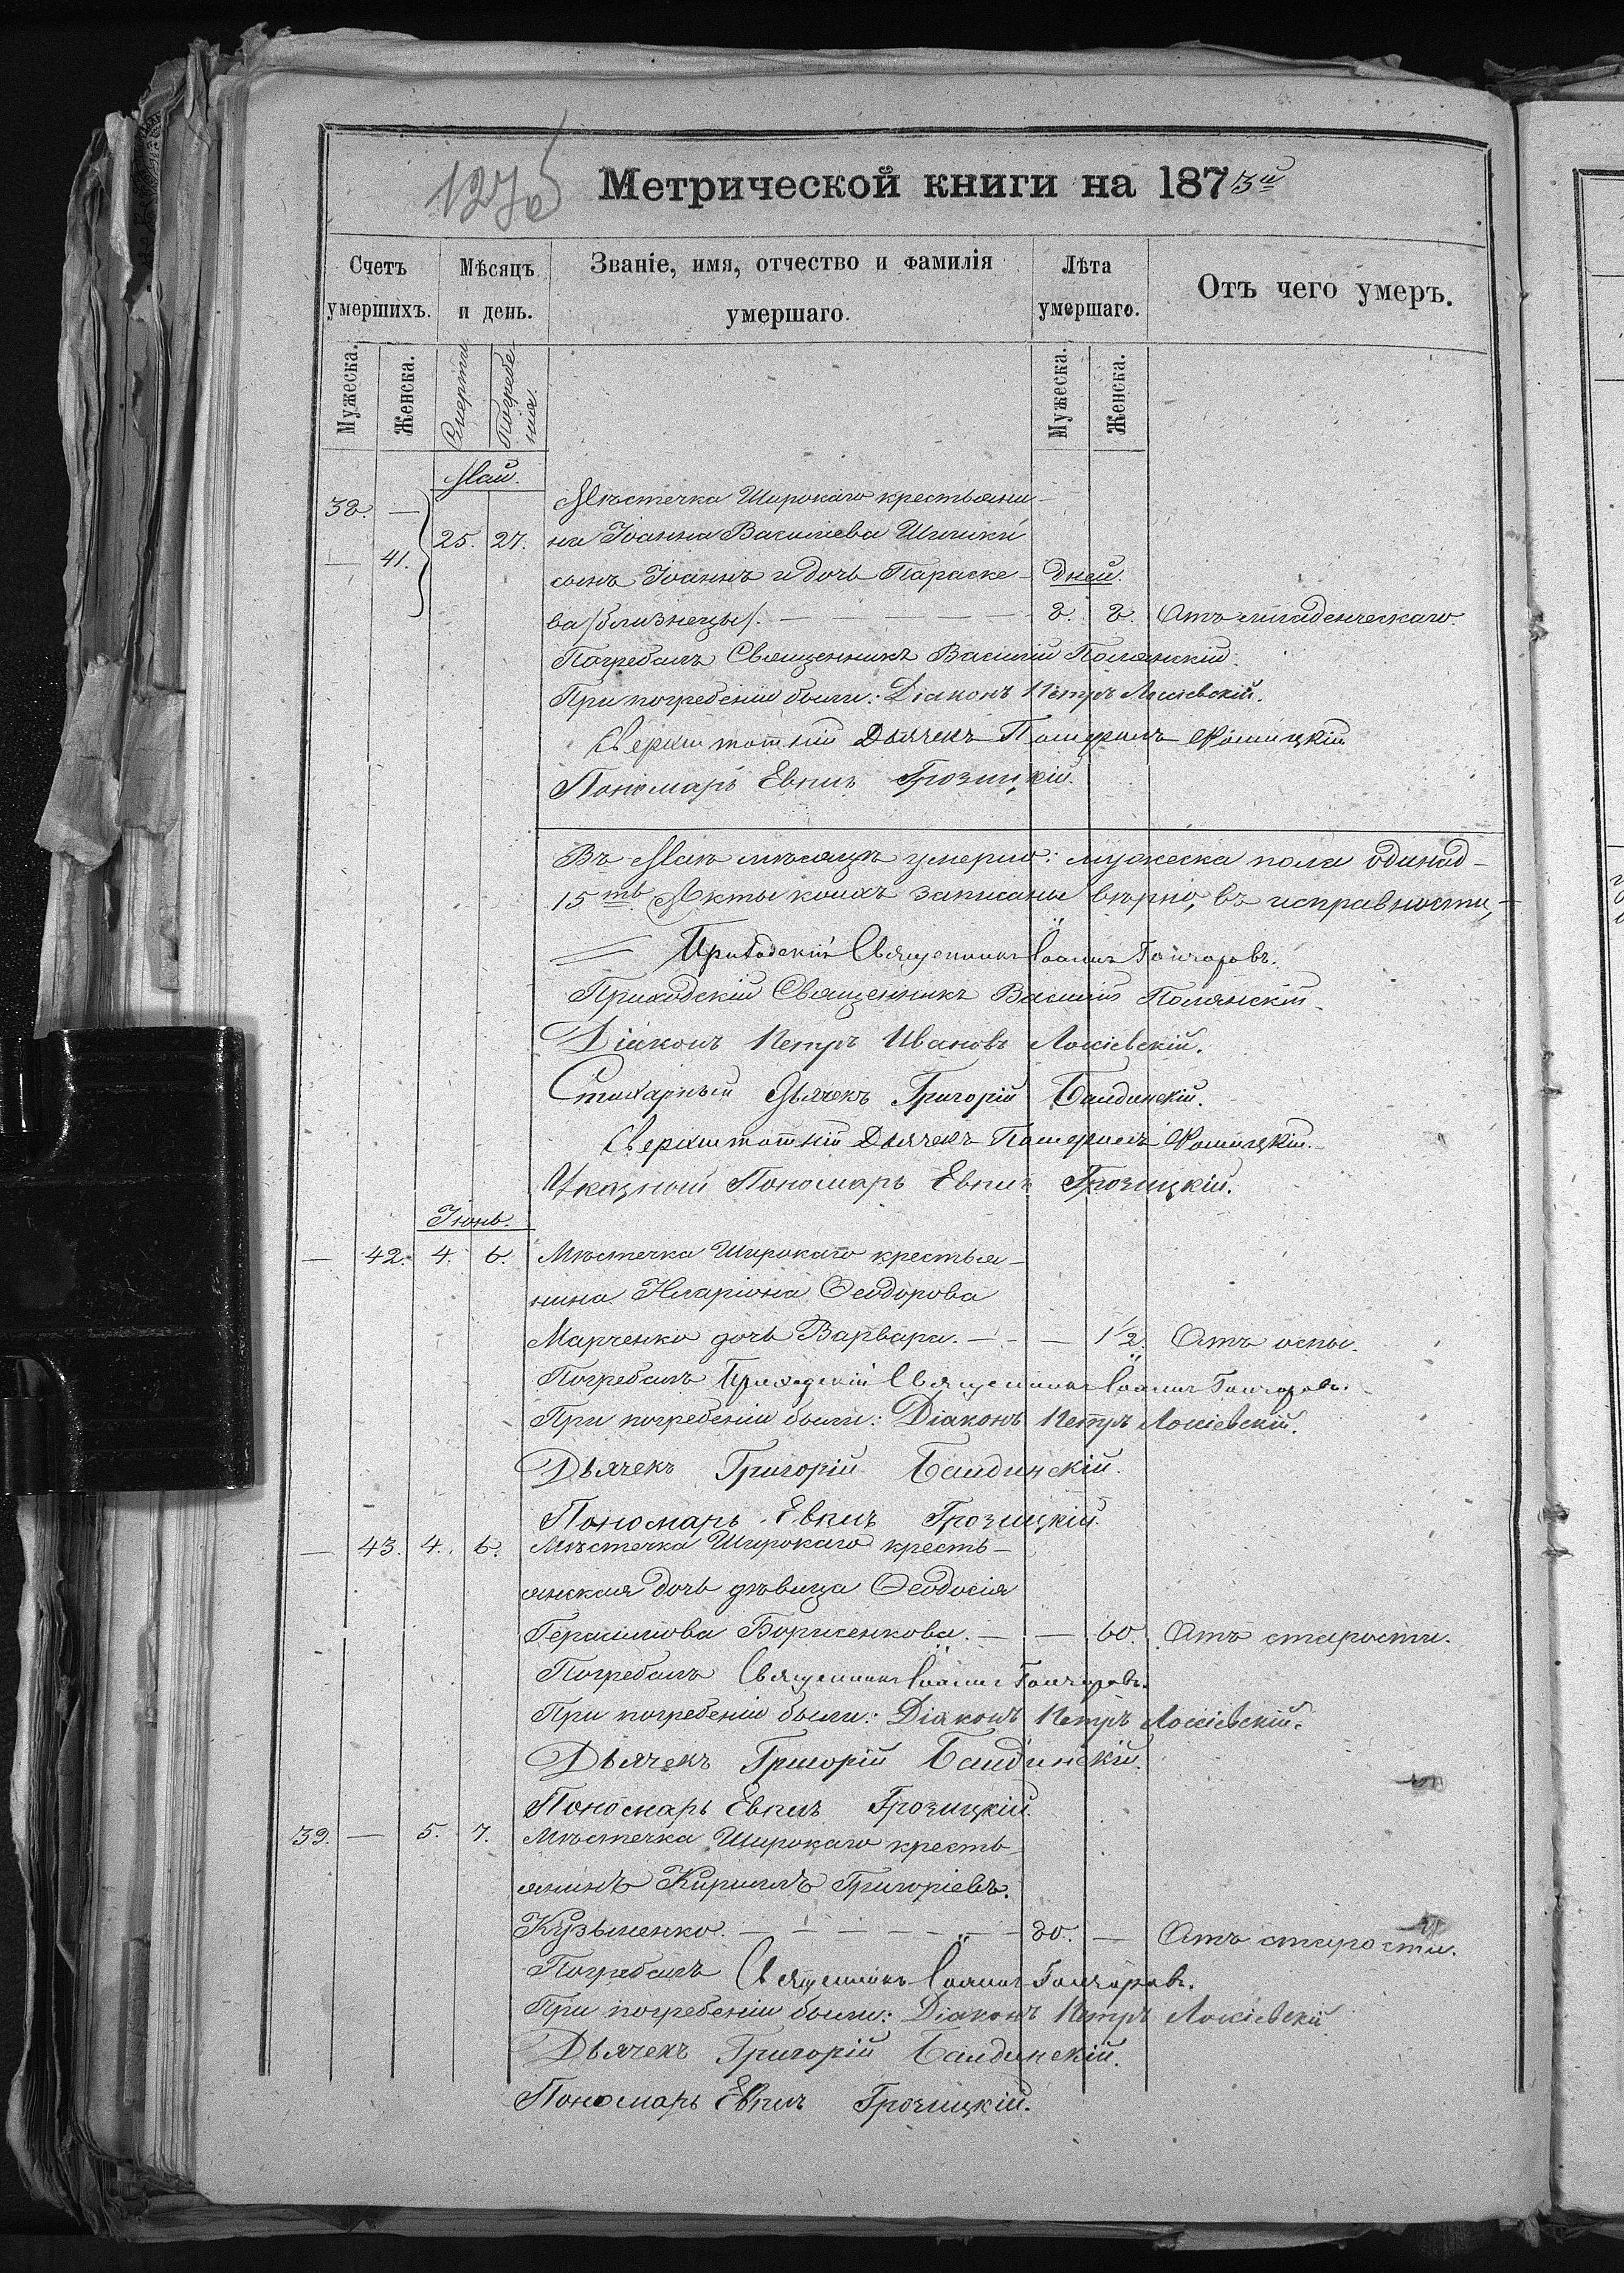 1276
Метрической книги на 1873й
Счетъ умершихъ.
Мѣсяцъ и день.
Званіе, имя, отчество и фамилія умершаго.
Лѣта умершаго.
Отъ чего умеръ.
Мужеска.
Женска.
Смерти
Погребенія.
Мужеска.
Женска.
Май.
38. — Мѣстечка Широкаго крестьяни-
— 41. 25. 27. на Іоанна Василіева
сынъ Іоаннъ и дочь Параске- дней.
ва /близнецы/. — 8. 8. Отъ младенческаго.
Погребалъ Священникъ Василій Полянскій.
При погребеніи были: Діаконъ Петръ Лосіевскій.
Сверхштатный Дьячекъ
Пономарь Евпсъ Грозицкій.
Въ Маѣ мѣсяцѣ умерло: мужеска пола одинад-
15ть Акты коихъ записаны вѣрно, въ исправности,—
Приходскій Священникъ Іоаннъ Гончаровъ.
Приходскій Священникъ Василій Полянскій
Діаконъ Петръ Ивановъ Лосіевскій.
Стихарный Дьячекъ Григорій Балдинскій.
Сверхштатный Дьячекъ
Указный Пономарь Грозицкій.
Іюнь.
— 42. 4. 6. Мѣстечка Широкаго крестья-
нина Иларіона Ѳеодорова
Марченко дочь Варвара. — — 1½. Отъ оспы.
Погребалъ Приходскій Священникъ Іоаннъ Гончаровъ.
При погребеніи были: Діаконъ Петръ Лосіевскій.
Дьячекъ Григорій Балдинскій.
Пономарь Грозицкій.
— 43. 4. 6. Мѣстечка Широкаго кресть-
янская дочь дѣвица Ѳеодосія
Герасимова Борисенкова. — — 60. Отъ старости.
Погребалъ Священникъ Іоаннъ Гончаровъ.
При погребеніи были: Діаконъ Петръ Лосіевскій.
Дьячекъ Григорій Балдинскій.
Пономарь Грозицкій.
39. — 5. 7. Мѣстечка Широкаго кресть-
янинъ Кириллъ Григоріевъ
Кузьменко. — 80. — Отъ старости.
Погребалъ Священникъ Іоаннъ Гончаровъ.
При погребеніи были: Діаконъ Петръ Лосіевскій
Дьячекъ Григорій Балдинскій.
Пономарь Грозицкій.